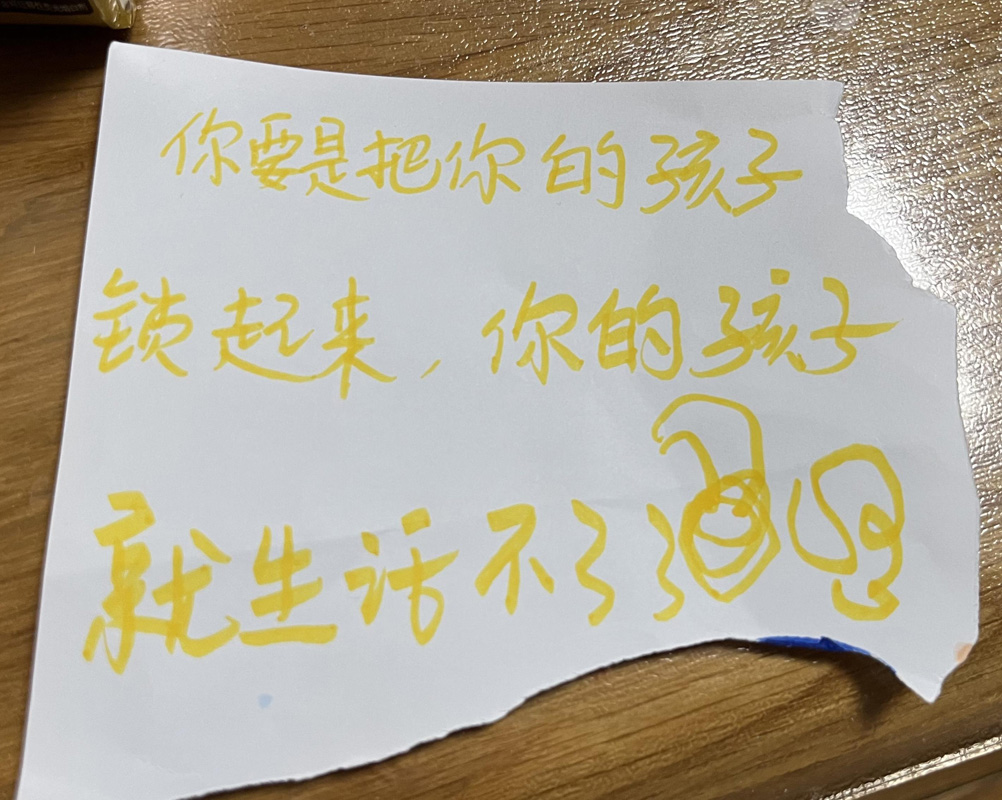 你要是把你的孩子
锁起来，你的孩子
就生活不了了